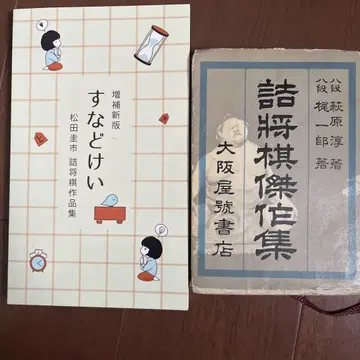 増補新版
すなどけい
松田圭市 詰将棋作品集
八段 萩原淳 著
八段 梶一郎 著
詰將棋傑作集
大阪屋號書店